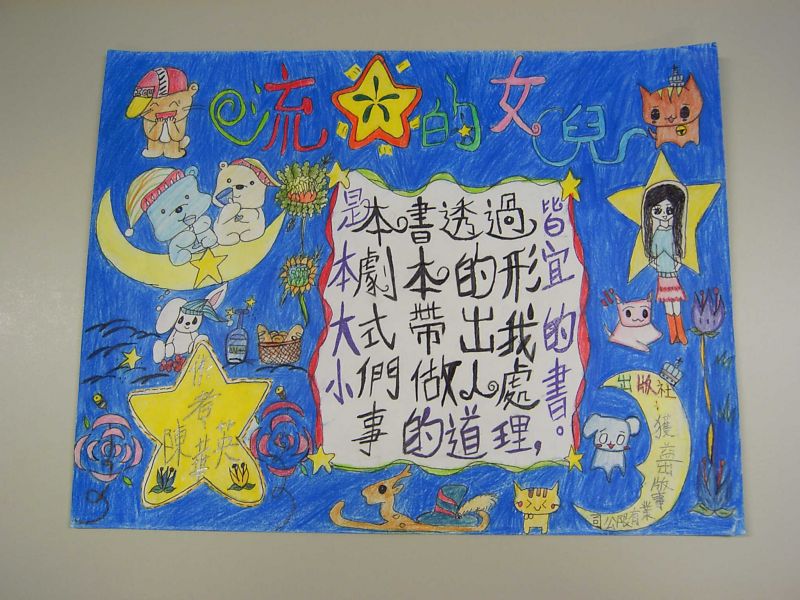 流的女兒
本書透過
劇本的形
式帶出我
們做人處
事的道理,
是本大小
皆宜的書。
作者
陳華英
出版社:獲益出版事業有限公司